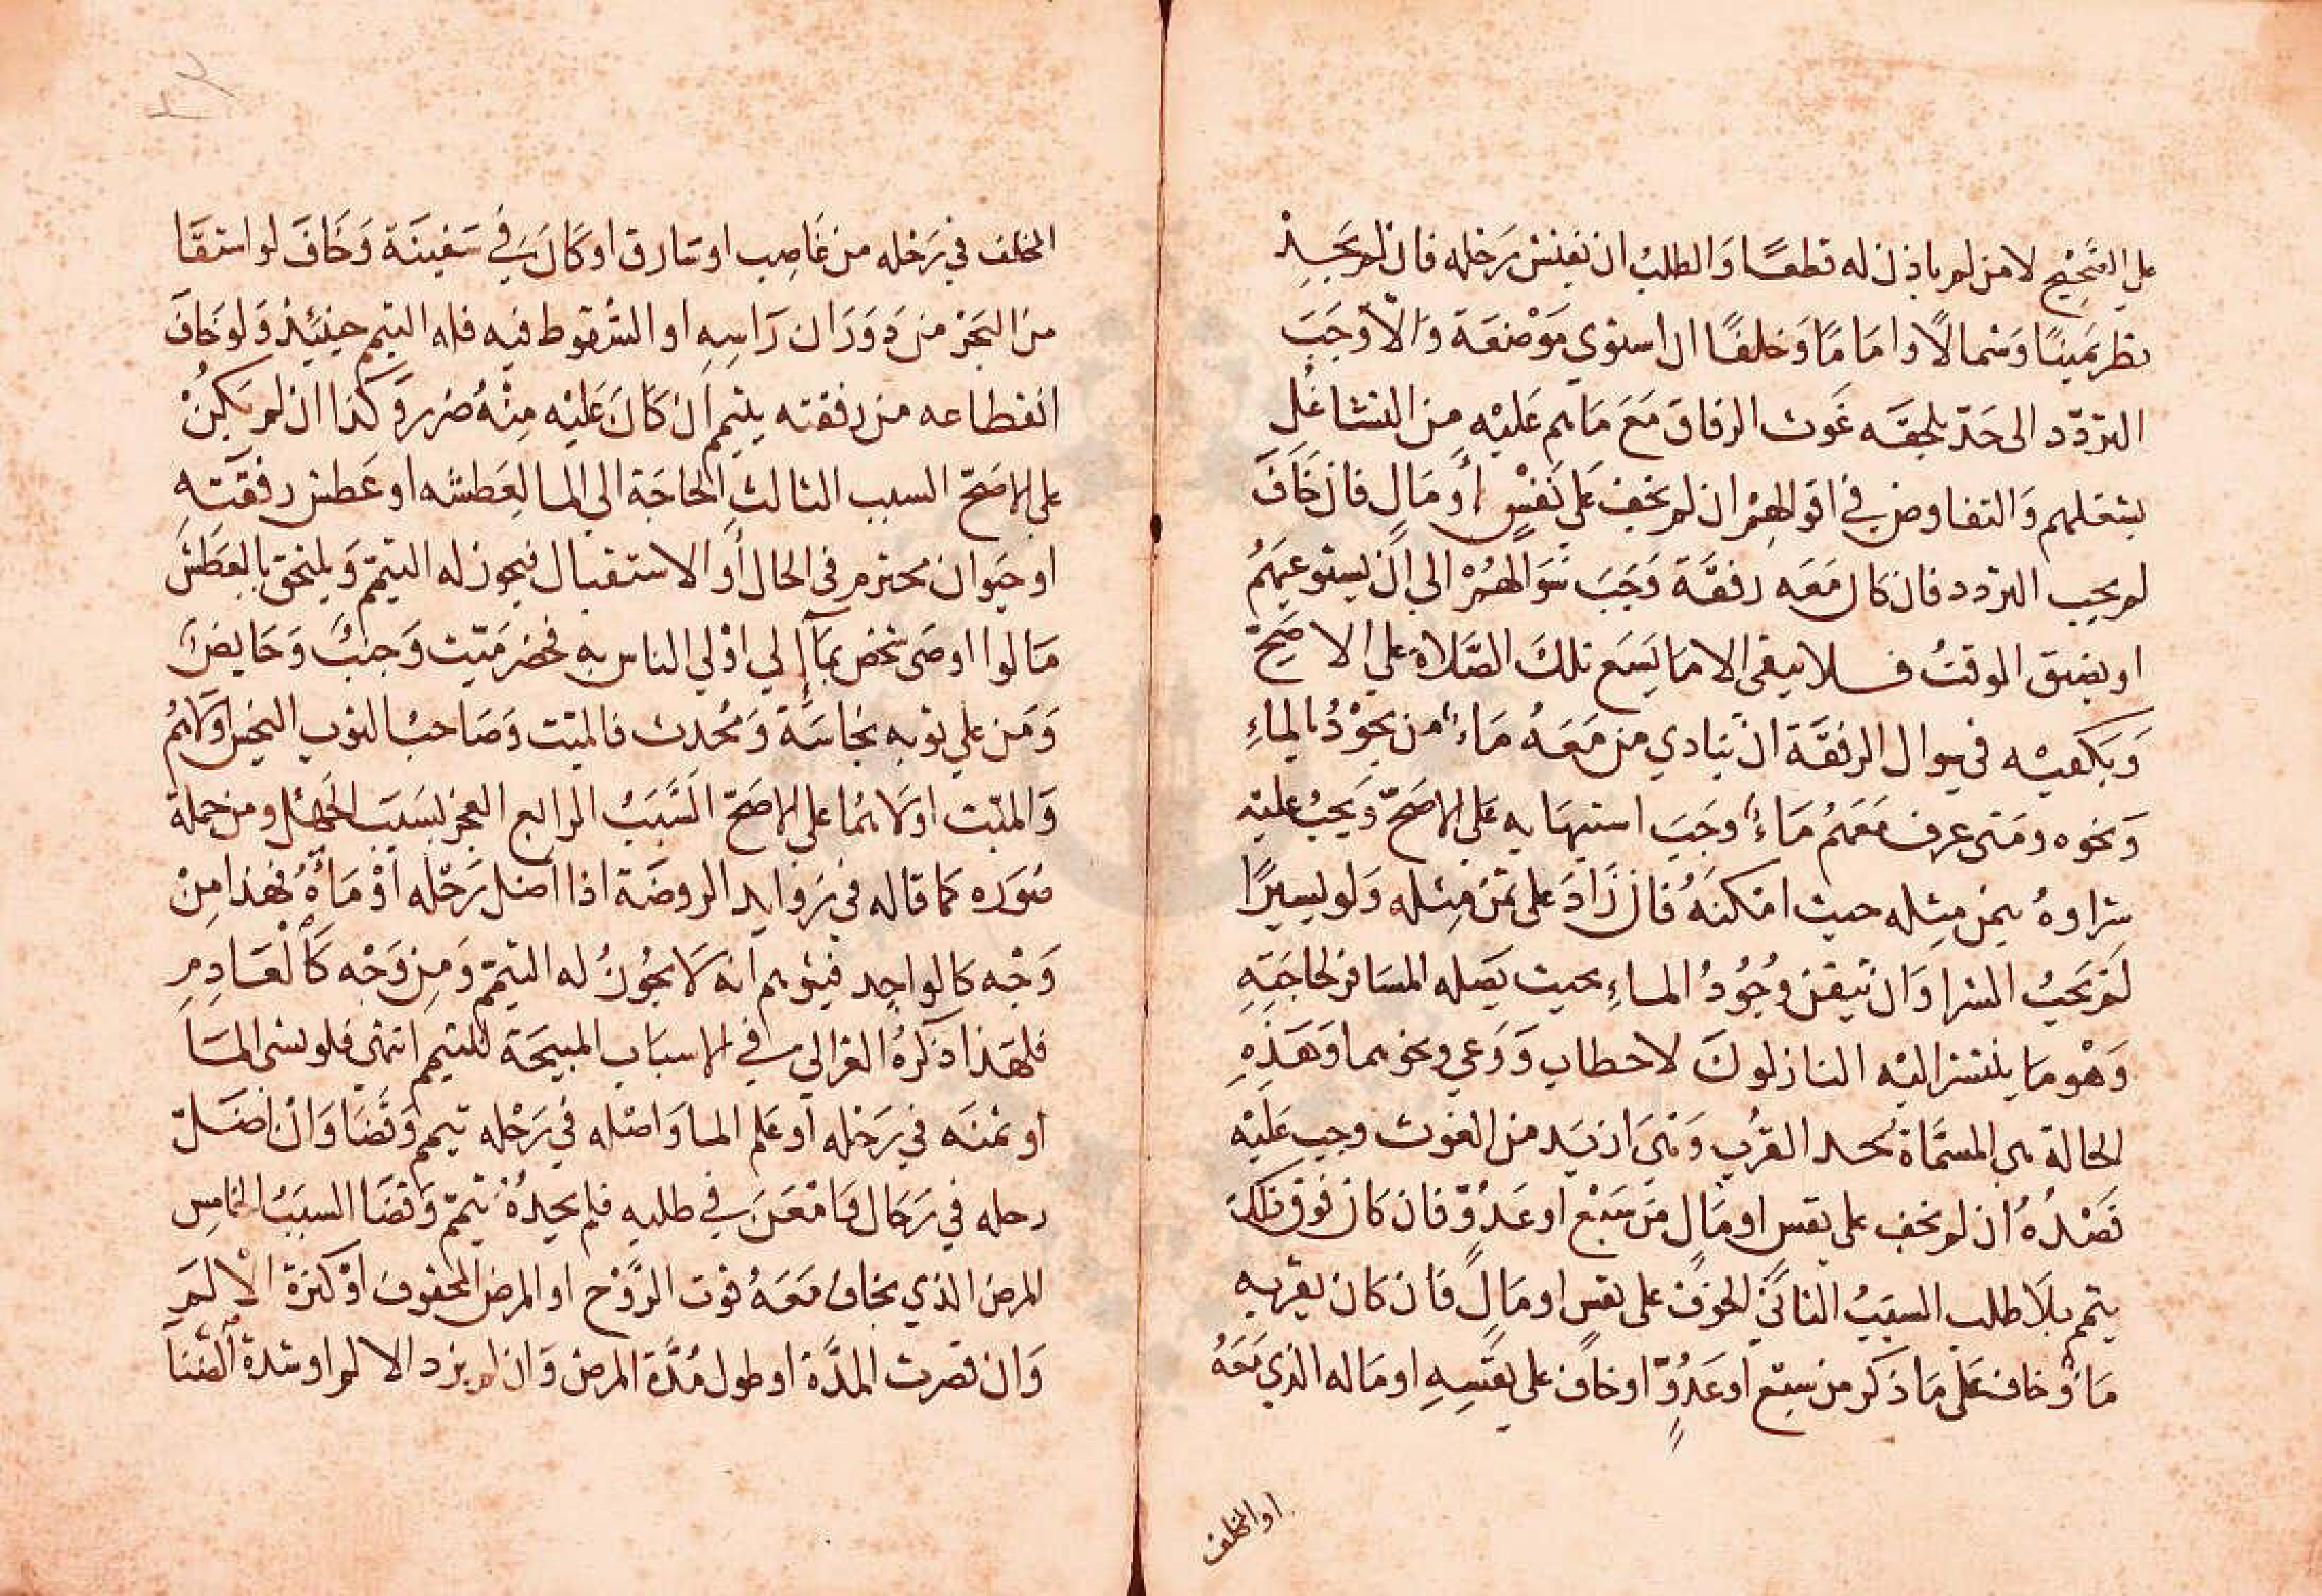 علي الصَّحِيْح لا من لم ياذن له قطعًا وَالطلبُ ان يفتش رَحْله فان لم يَجِدْ
نظر يَمينًا وَشمالًا وامَامًا وَخلفًا ان استوي مَوْضعَهُ وَالّا وَجَبَ
التردّد الى حَدّ يلحقه غَوث الرفاق مَعَ مَا هم عَليْهِ من التشاغُل
بشغلهم وَالتفاوض في اقوالهِمْ ان لم يخف عَلي نَفْسٍ أو مَالٍ فان خَافَ
لم يجب التردد فان كان مَعَه رفقَة وَجَبَ سُوَالهُمْ الي ان يستوعبَهُم
او يضيق الوقتُ فلا يبقي الا مَا يَسَع تلكَ الصَّلاة علي الاصَحّ
وَيَكفيْه في سوال الرفقَة ان يُنادي من مَعَهُ مَاءٌ من يَجُوْدُ بالماءِ
وَنحوه ومَتى عرف مَعَهُم مَاءً وجَبَ استيهَابه عَلي الاصَحّ وَيَجبُ عليْه
شراوهُ بثمن مِثله حيث امْكنَهُ فان زَادَ على ثمَن مِثله وَلو يسيْرًا
لَمْ يَجبُ الشرا وَان تيقنَ وُجُودُ الماءِ بحيث يَصله المسَافر لحاجَتِهِ
وَهْو مَا ينتشر اليْه النازلونَ لاحطاب وَرَعي ونحوهما وَهَذِهِ
الحَالة هي المسمَّاة بحد القرْب وَهْيَ ازيَد من الغوث وجب عَليْه
قَصْدُهُ ان لم يخف على نفس او مَالٍ مِن سَبْع او عَدُوّ فان كان فوق ذلكَ
يتيمم بلَا طلب السبَبُ الثاني الخوْف على نفس او مَالٍ فَان كان بقربهِ
مَاءٌ وخاف عَلى مَا ذكر من سَبع او عَدُوٍّ او خاف على نفسِهِ او مَاله الذي مَعَهُ
او المخلف
المخلف في رَحْله من غَاصِب او سَارق او كانَ في سَفينَة وَخَافَ لو استقَا
من البَحْر من دَوَرَان رَاسِهِ او السُّقوط فيْه فله التيمم حينَئذْ وَلو خَافَ
انقطاعه من رفقته يتيمم ان كَانَ عَليْه مِنْهُ ضرر وَكذا ان لم يَكُنْ
على الاصَحّ السبب الثالث الحَاجَة الى الما لعَطشه او عَطش رفقَتهِ
او حيَوان محترم في الحَال أو الاستقبال فيجوز له التيمّم وَيلتحق بالعَطش
مَا لوا اوصَى شخص بمَآء الي اوْلي الناس به فحَضر مَيّت وَجنُبٌ وَحَايضٌ
وَمَن علي ثوبه نجاسَة وَمُحْدث فالميّت وَصَاحبُ الثوب النجيس اولاهُم
وَالميّت اولاهُمَا على الاصَحّ السَّبَبُ الرابع العجز بسَبَب الجَهْل ومن جملة
صُوَره كما قاله في زوايد الروضَة اذا اَضل رَحْله اوْ مَاءهُ فهَذا مِنْ
وَجْه كالواجد فيتوهم انه لَا يجُوْزُ له التيمّم وَمِن وَجْه كَالْعَادِمِ
فلهَذا ذكرَهُ الغزالي في الاسبَاب المبيحَة للتيمم انتهي فلو نسَى المَا
أو ثمنَه في رَحْله أو عَلم الما وَاضله في رَحْله تيمم وَقضَا وَان اضَلّ
رحله في رَحَال فامْعَن في طلبهِ فلم يجدْهُ تيمّم وَقضَا السبَبُ الخامِس
المرض الذي يخافُ مَعَهُ فوت الرّوْح او المرض المخوف اوْ كثرة الْالَم
وَان قصرت المدَّة او طول مُدَّة المرض وَان لم يزد الالم او شدة الضنا